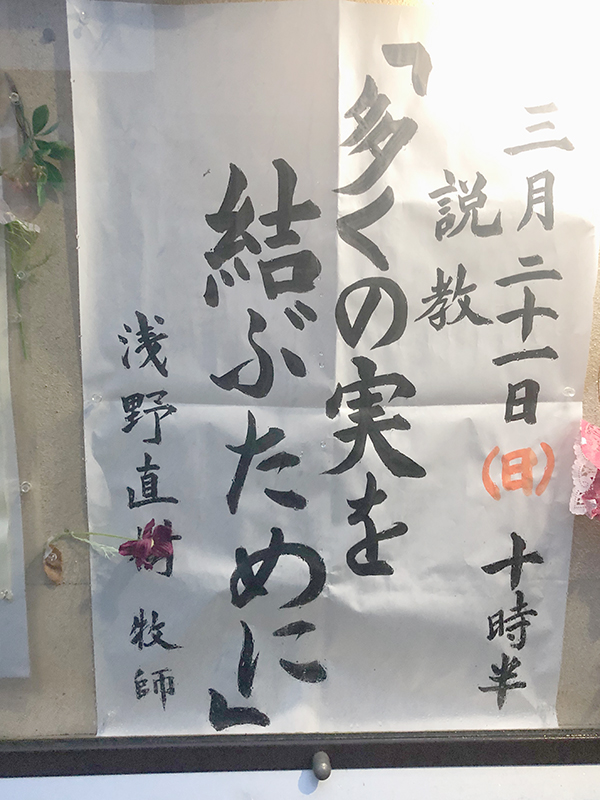 三月二十一日(日) 十時半
説教
「多くの実を
結ぶために」
浅野直樹 牧師